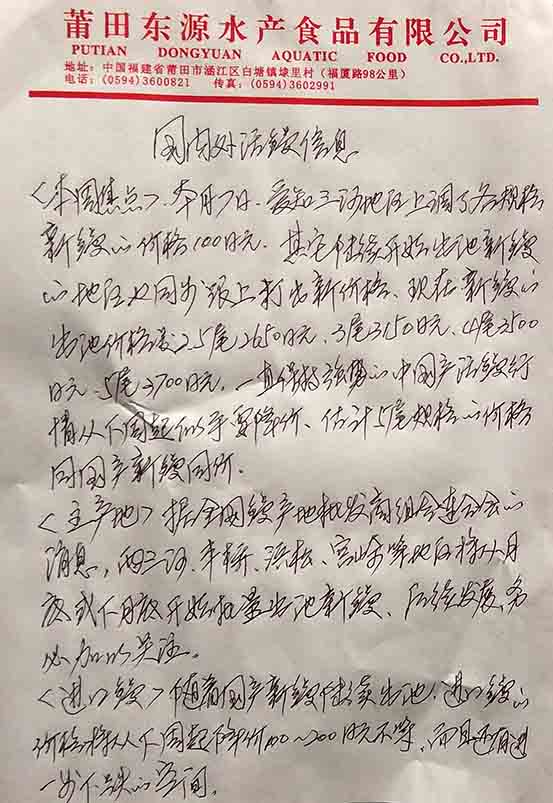 莆田东源水产食品有限公司
PUTIAN DONGYUAN AQUATIC FOOD CO.,LTD.
地址：中国福建省莆田市涵江区白塘镇埭里村（福厦路98公里）
电话：(0594)3600821 传真：(0594)3602991
国内外活鳗信息
<本周焦点>、本月7日、爱知三河地区上调了各规格
新鳗的价格100日元、其它陆续开始出池新鳗
的地区也同步跟上打出新价格、现在新鳗的
出池价格是2.5尾2650日元、3尾3150日元、4尾3500
日元、5尾3700日元、一直保持强势的中国产活鳗行
情从下周起似乎要降价、估计5尾规格的价格
同国产新鳗同价。
<主产地>据全国鳗产地批发商组合连合会的
消息，西三河、丰桥、浜松、宫崎等地区将从月
底或下月底开始批量出池新鳗、后续发展，务
必加以关注。
<进口鳗>随着国产新鳗陆续出池，进口鳗的
价格将从下周起降价100~200日元不等，而且还有进
一步下跌的空间。